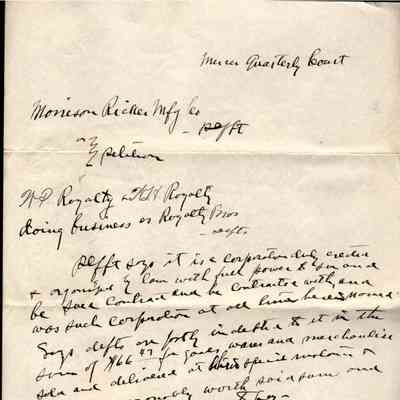 Mercer Quarterly Court
Morrison Ricker Mfg Co
- Plfft
vs } petition
W D Royalty & H H Royalty
doing business as Royalty Bros
- Defts
Plfft says it is a corporation duly created
& organized by law with full power to sue and
be sued contract and be contracted with, and
was such corporation at all times herein named.
Says defts are justly indebted to it in the
sum of $166 for goods wares and merchandise
sold and delivered at special instance &
reasonably worth said sum and